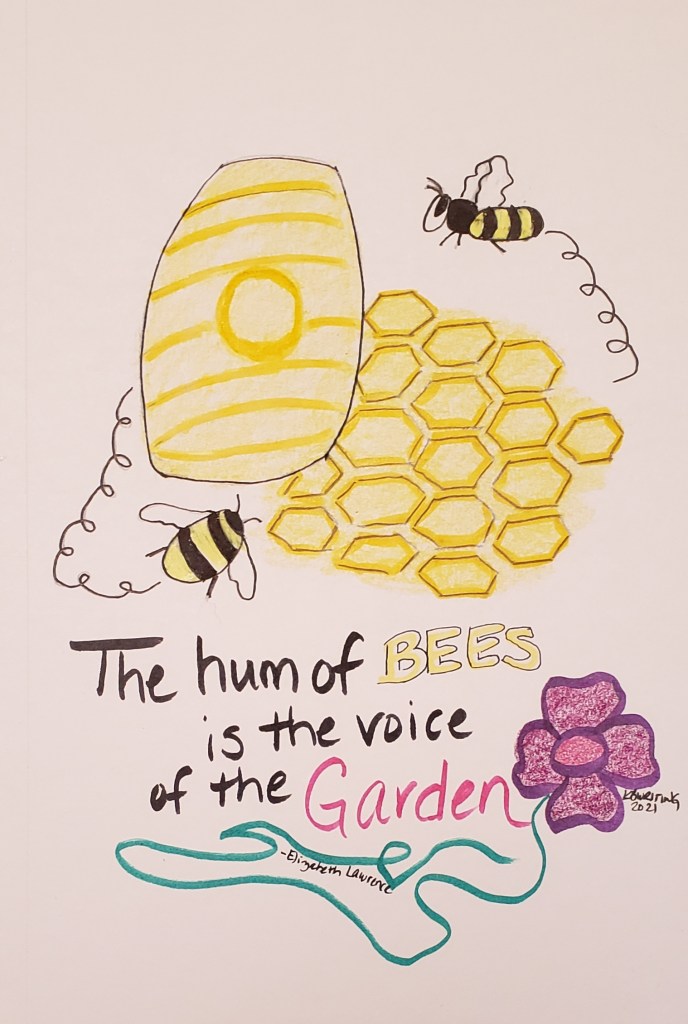 The hum of BEES
is the voice
of the Garden
-Elizabeth Lawrence
2021